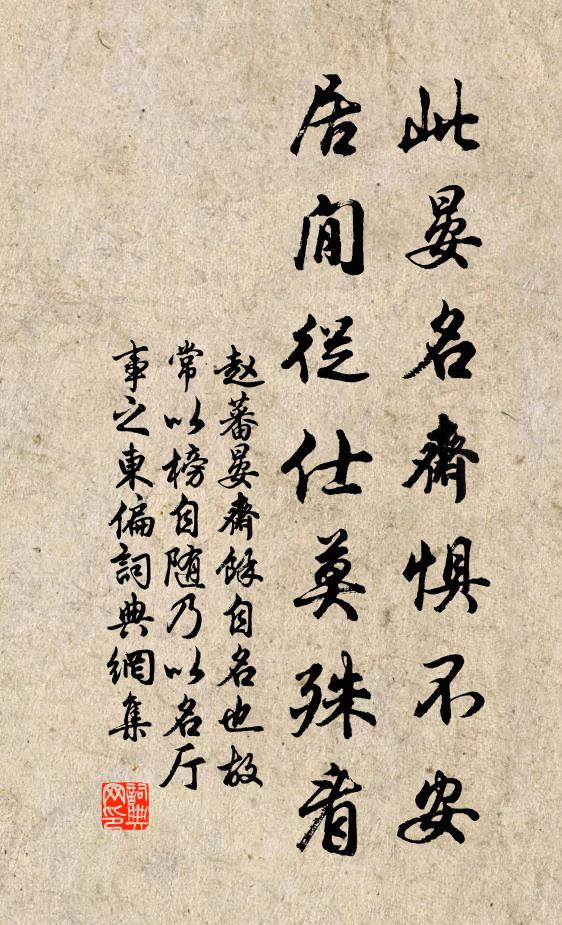 此晏名齋惧不安
居闲從仕莫殊看
赵蕃晏齋餘自名也故
常以榜自随乃以名厅
事之東偏詞典網集
詞典
网印